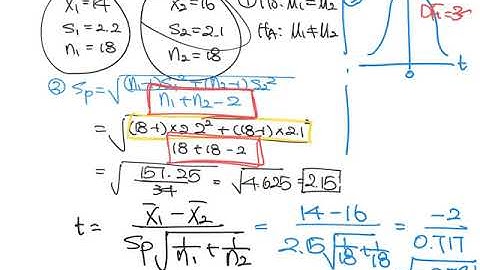 x̄₁=14
s₁=2.2
n₁=18
x̄₂=16
s₂=2.1
n₂=18
① H₀: μ₁=μ₂
H_A: μ₁≠μ₂
0
t
② Sp=√((n₁-1)S₁²+(n₂-1)S₂²
n₁+n₂-2
=√((18-1)×2.2²+(18-1)×2.1²
18+18-2
=√(157.25/34) =√4.625=2.15
t= (x̄₁-x̄₂)/(Sp√(1/n₁+1/n₂)) = (14-16)/(2.15√(1/18+1/18)) = -2/0.717